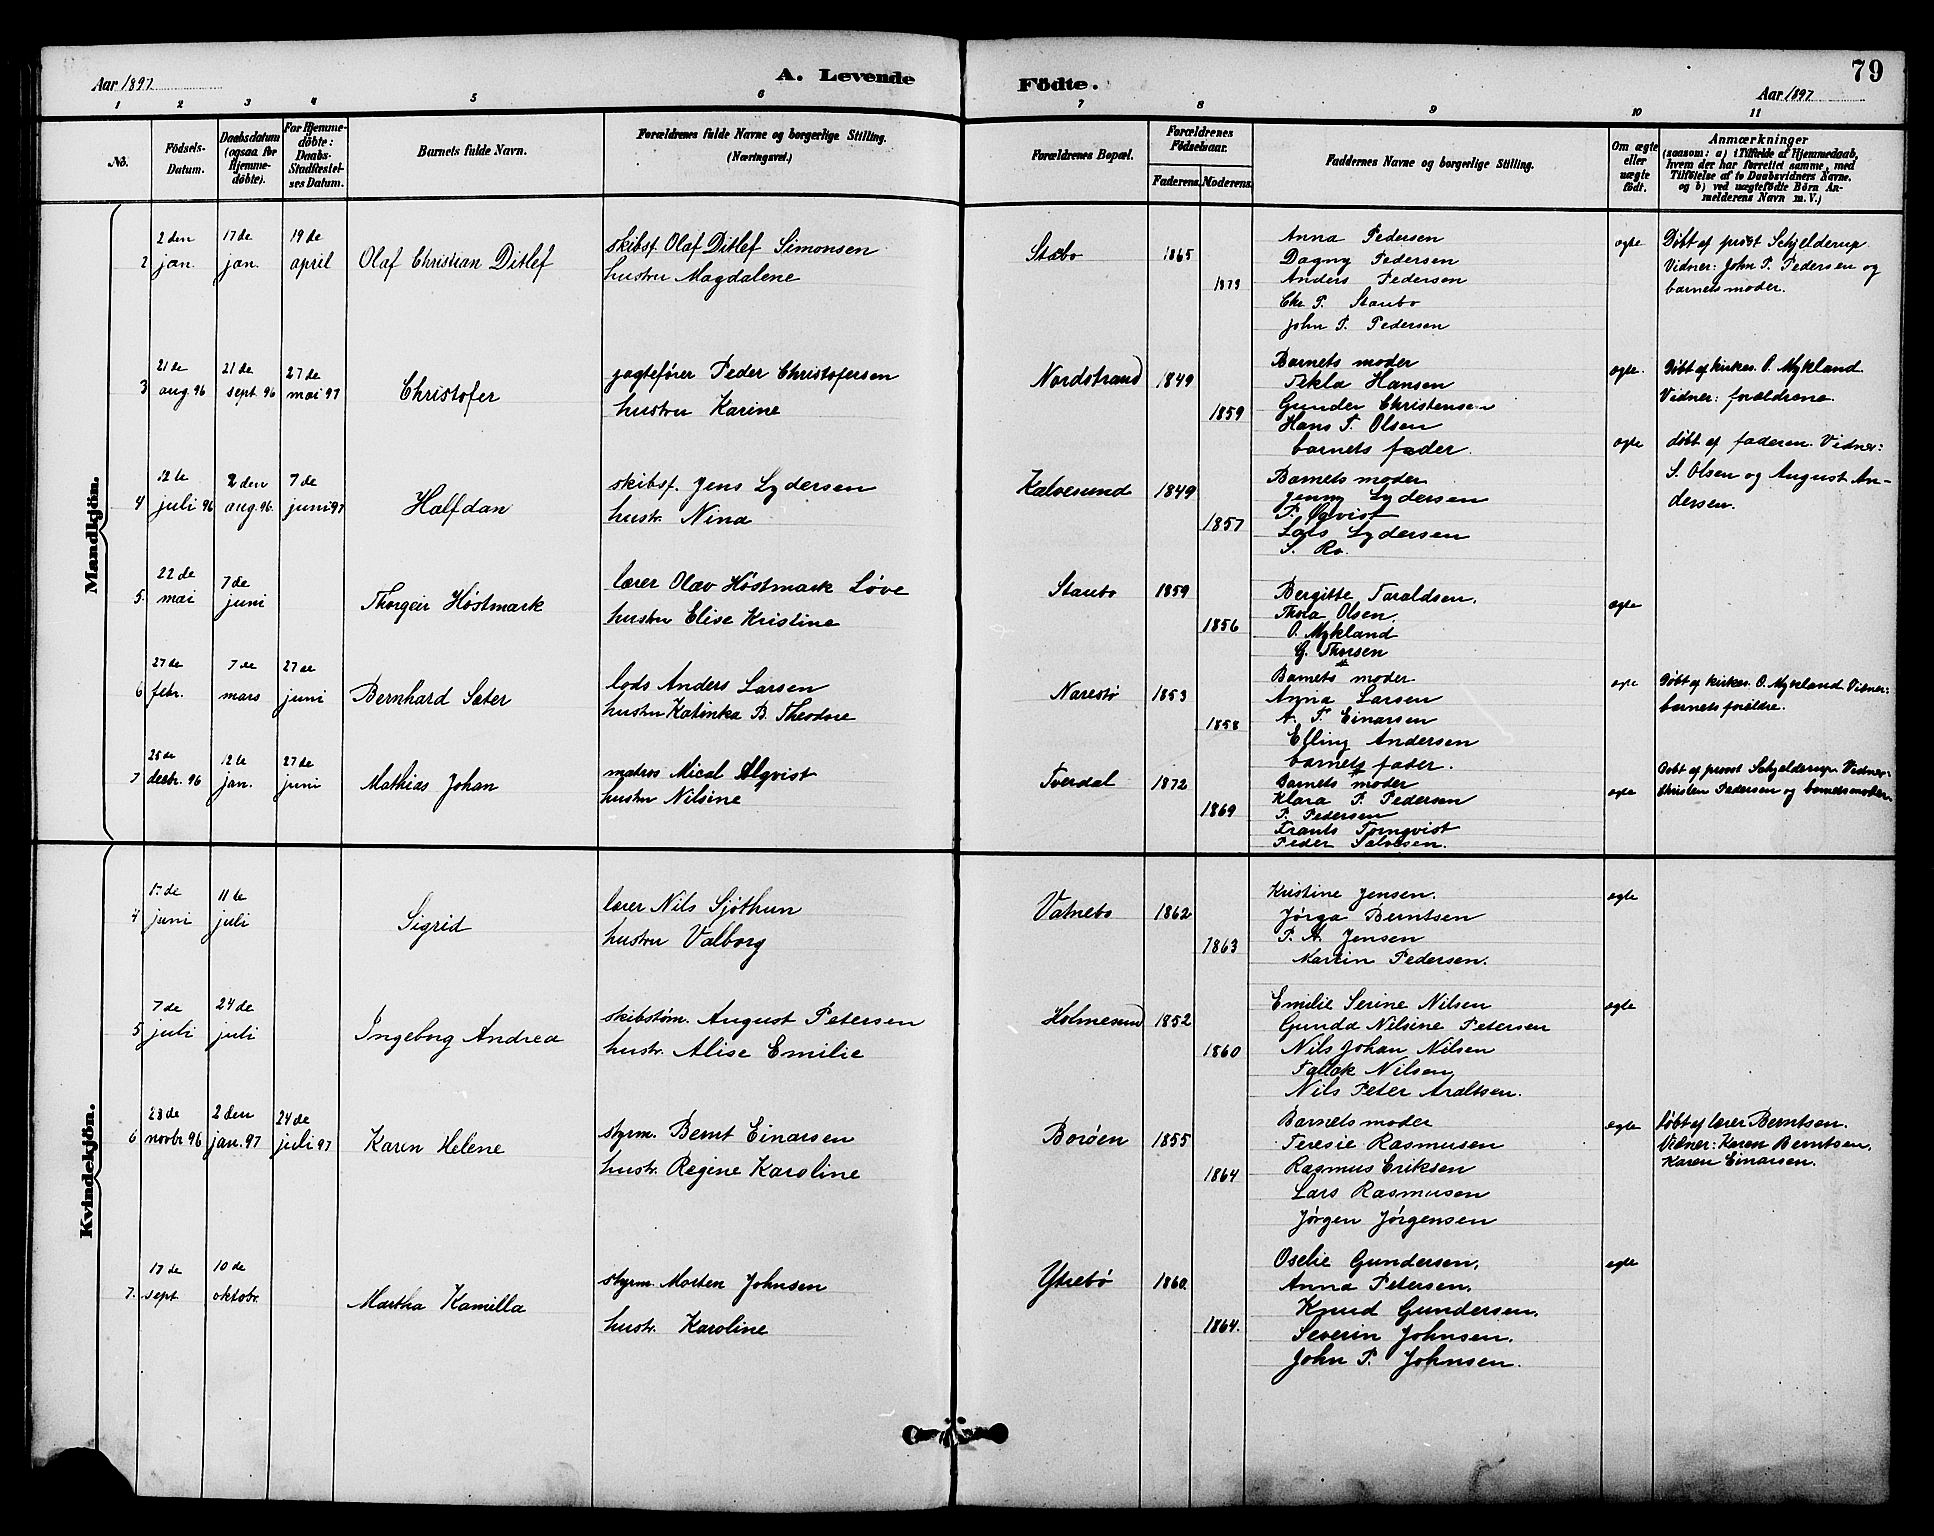 79
Aar 1897
A. Levende Födte.
Aar 1897
1 2 3 4 5 6 7 8 9 10 11
No.
Födsels-Datum.
Daabsdatum (ogsaa for Hjemme-döbte).
For Hjemme-döbte: Daabs-Stadfæstel-ses Datum.
Barnets fulde Navn.
Forældrenes fulde Navne og borgerlige Stilling. (Næringsvei.)
Forældrenes Bopæl.
Forældrenes Födselsaar.
Faderens. Moderens.
Faddernes Navne og borgerlige Stilling.
Om ægte eller uægte födt.
Anmærkninger
(saasom: a) i Tilfælde af Hjemmedaab, hvem der har forrettet samme, med Tilföielse af to Daabsvidners Navne, og b) ved uægtefödte Börn An-melderens Navn m. V.)
Mandkjön.
2
2den jan.
17de jan.
19de april
Olaf Christian Ditlef
skibsf. Olaf Ditlef Simonsen
hustru Magdalene
Stabo
1865
1873
Anna Pedersen
Dagny Pedersen
Anders Pedersen
Chr P. Staubo
John P. Pedersen
ægte
Døbt af prost Schjelderup
Vidner: John P. Pedersen og
barnets moder.
3
21de aug. 96
21de sept 96
27de mai 97
Christofer
jagtefører Peder Christofersen
hustru Karine
Nordstrand
1849
1859
Barnets moder
Tekla Hansen
Gunder Christensen
Hans T. Olsen
barnets fader.
ægte.
Døbt af kirkes. O. Mykland
Vidner: forældrene.
4
12te juli 96
2den aug. 96.
7de juni 97
Halfdan
skibsf. Jens Lydersen
hustr. Nina
Kalvesund
1849
1857
Barnets moder
Jenny Lydersen
Lars Lydersen
ægte
døbt af faderen. Vidner:
S. Olsen og August An-
dersen.
5.
22de mai
7de juni
Thorgeir Høstmark
lærer Olav Høstmark Løve
hustru Elise Kristine
Staubo
1859
1856
Bergitte Taraldsen.
Thora Olsen.
O. Mykland
G. Thorsen
ægte
6
27de febr.
7de mars
27de juni
Bernhard Sæter
lods Anders Larsen
hustru Katinka B. Theodore
Narestø
1853
1858
Barnets moder
Anna Larsen
A. T. Einarsen
Elling Andersen
barnets fader.
ægte
Døbt af kirkes. O. Mykland Vidner:
barnets forældre.
7
25de decbr. 96
12te jan.
27de juni
Mathias Johan
matros Mical Alqvist
hustru Nilsine
Tverdal
1872
1869
Barnets moder
Klara P. Pedersen
P. Pedersen
Frants Tornqvist
Peder Salvesen.
ægte
Døbt af prost Schjelderup. Vidner:
Christen Pedersen og barnets moder.
Kvindekjön.
4
17de juni
11te juli
Sigrid
lærer Nils Sjöthun
hustru Valborg
Vatnebo
1862
1863
Kristine Jensen.
Jørga Berntsen
P. A. Jensen
Martin Pedersen.
ægte
5
7de juli
24de juli
Ingeborg Andrea
skibstøm. August Petersen
hustr. Alise Emilie
Holmesund
1852
1860
Emilie Serine Nilsen
Gunda Nilsine Petersen
Nils Johan Nilsen
Tallak Nilsen
Nils Peter Araltsen.
ægte
6
23de novbr 96
2den jan. 97
24de juli 97
Karen Helene
styrm. Bernt Einarsen
hustr. Regine Karoline
Borøen
1855
1864
Barnets moder
Teresie Rasmusen
Rasmus Eriksen
Lars Rasmusen
Jørgen Jørgensen
ægte
Døbt af lærer Berntsen.
Vidner: Karen Berntsen,
Karen Einarsen.
7.
17de sept
10de oktobr.
Martha Kamilla
styrm. Morten Johnsen
hustr. Karoline
Ytrebø
1860.
1864.
Oselie Gundersen.
Anna Petersen.
Knud Gundersen.
Severin Johnsen.
John P. Johnsen.
ægte